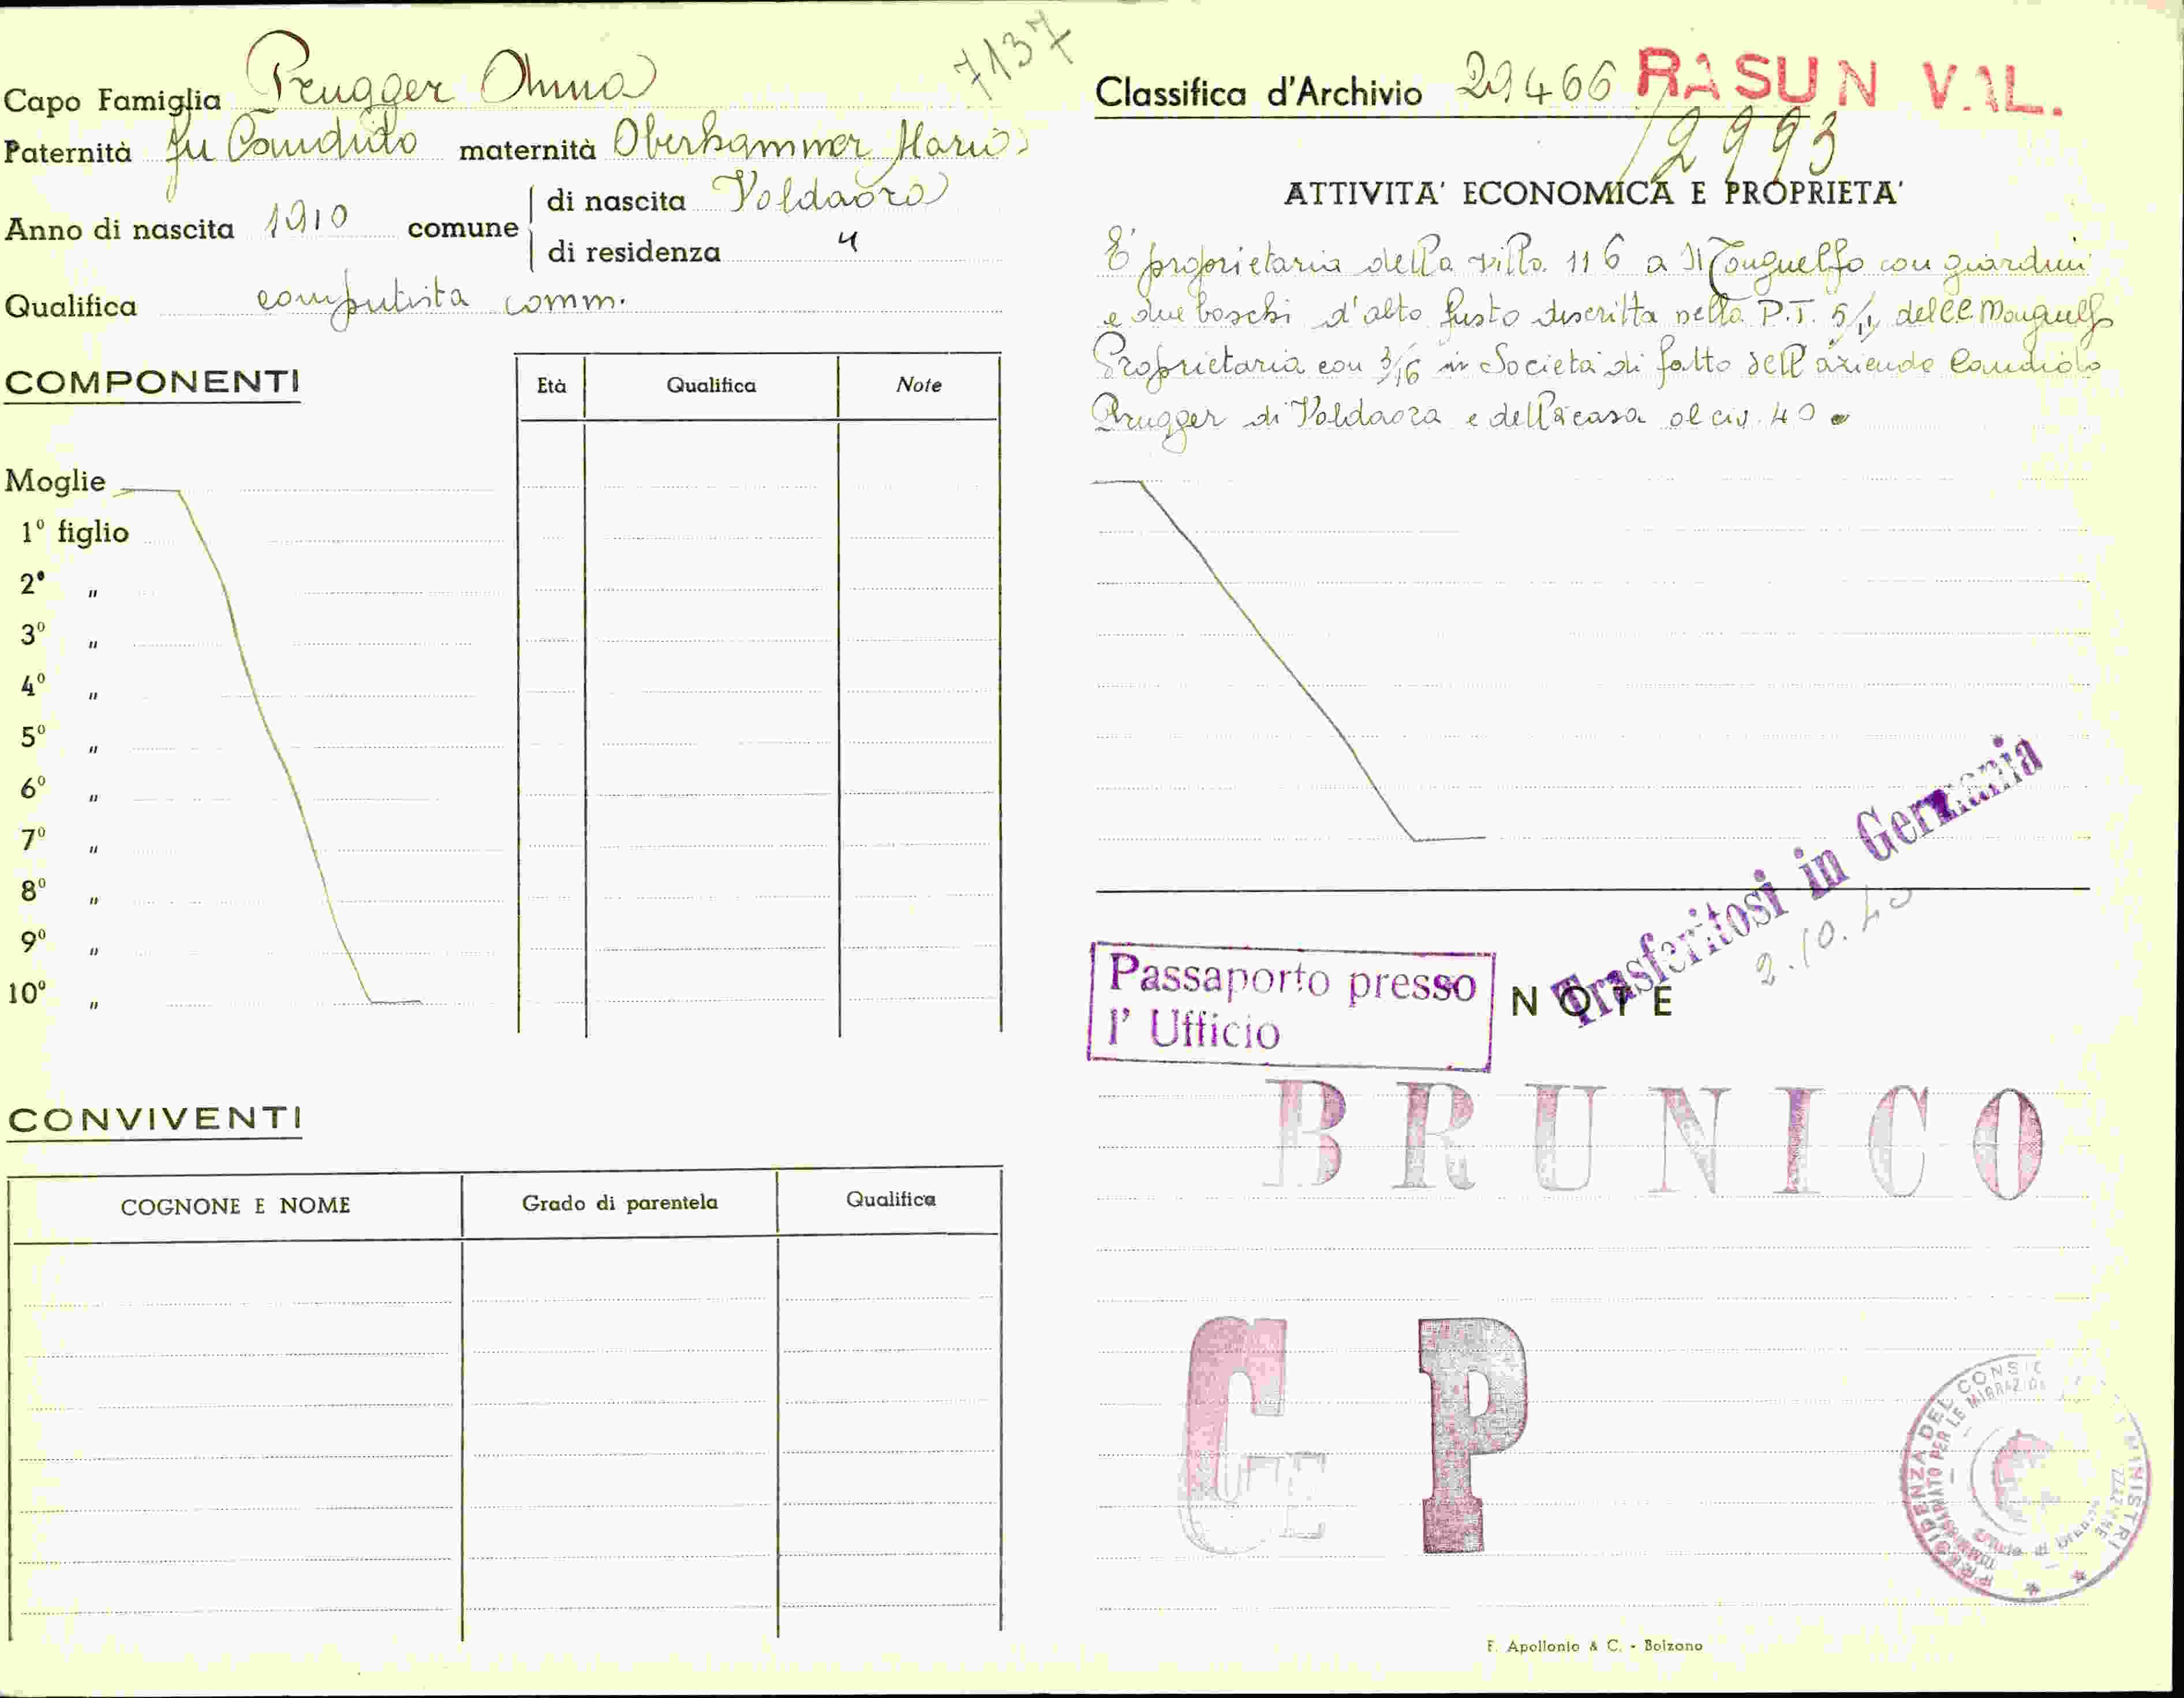 7137
Capo Famiglia Prugger Anna
Paternità fu Candido maternità Oberhammer Maria
Anno di nascita 1910 comune di nascita Valdaora
di residenza "
Qualifica computista comm.
COMPONENTI
Età Qualifica Note
Moglie
1º figlio
2º "
3º "
4º "
5º "
6º "
7º "
8º "
9º "
10º "
CONVIVENTI
COGNONE E NOME Grado di parentela Qualifica
Classifica d'Archivio 29466 RASUN VAL.
/2993
ATTIVITA' ECONOMICA E PROPRIETA'
E' proprietaria della villa 116 a Monguelfo con giardini
e due boschi d'alto fusto descritta nella P.T. 5/II del C.C. Monguelfo
Proprietaria con 3/16 in Società di fatto dell'azienda Candido
Prugger di Valdaora e della casa al civ. 40
Trasferitosi in Germania
2.10.40
Passaporto presso
l' Ufficio
NOTE
BRUNICO
C P
PRESIDENZA DEL CONSIG MINISTRI
PER LE MIGRAZIO
F. Apollonio & C. - Bolzano